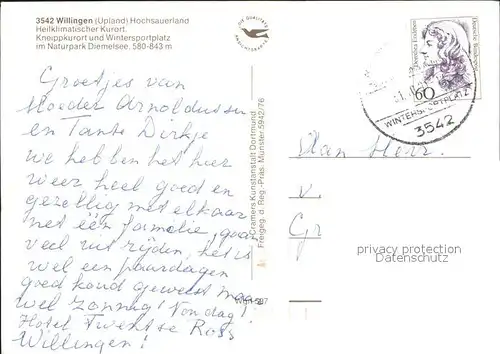 3542 Willingen (Upland) Hochsauerland
Heilklimatischer Kurort.
Kneippkurort und Wintersportplatz
im Naturpark Diemelsee. 580-843 m
DIE QUALITÄTS
ANSICHTSKARTE
Groetjes van
Moeder Arnoldussen
en Tante Dirkje
we hebben het hier
weer heel goed en
gezellig met elkaar
net één familie, gaan
veel uit rijden, het is
wel een paar dagen
goed koud geweest maar
wel zonnig! Vandaag!
Hotel Twentse Ross
Willingen!
Cramers Kunstanstalt Dortmund
Freigeg. d. Reg.-Präs. Münster 5942/76
Dorothea Erxleben
Deutsche Bundespost
60
WINTERSPORTPLATZ
3542
Aan Heer
v.
Gr
privacy protection
Datenschutz